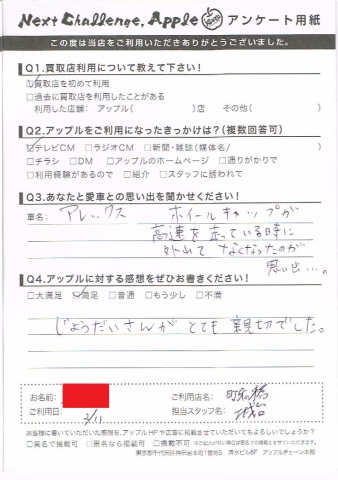 Next Challenge, Apple アンケート用紙
この度は当店をご利用いただきありがとうございました。
Q1.買取店利用について教えて下さい!
☑買取店を初めて利用
□過去に買取店を利用したことがある
利用した店舗:アップル( )店 その他( )
Q2.アップルをご利用になったきっかけは?(複数回答可)
☑テレビCM □ラジオCM □新聞・雑誌(媒体名/ )
□チラシ □DM □アップルのホームページ □通りがかりで
□利用経験があるので □紹介 □スタッフに誘われて
Q3.あなたと愛車との思い出を聞かせください!
車名: アレックス ホイールキャップが
高速を走っている時に
外れて なくなったのが
思い出…。
Q4.アップルに対する感想をぜひお書きください!
□大満足 ☑満足 □普通 □もう少し □不満
じょうだいさんが とても 親切でした。
お名前: ご利用店名:
ご利用日: 3/11 担当スタッフ名:
お客様に書いていただいた感想を、アップルHPや広告に掲載させていただいてもよろしいでしょうか?
□実名で掲載可 □匿名なら掲載可 □掲載不可 ※ご記入がない場合は匿名での掲載とさせていただきます。
東京都千代田区神田岩本町1番地5 清水ビル8F アップルチェーン本部